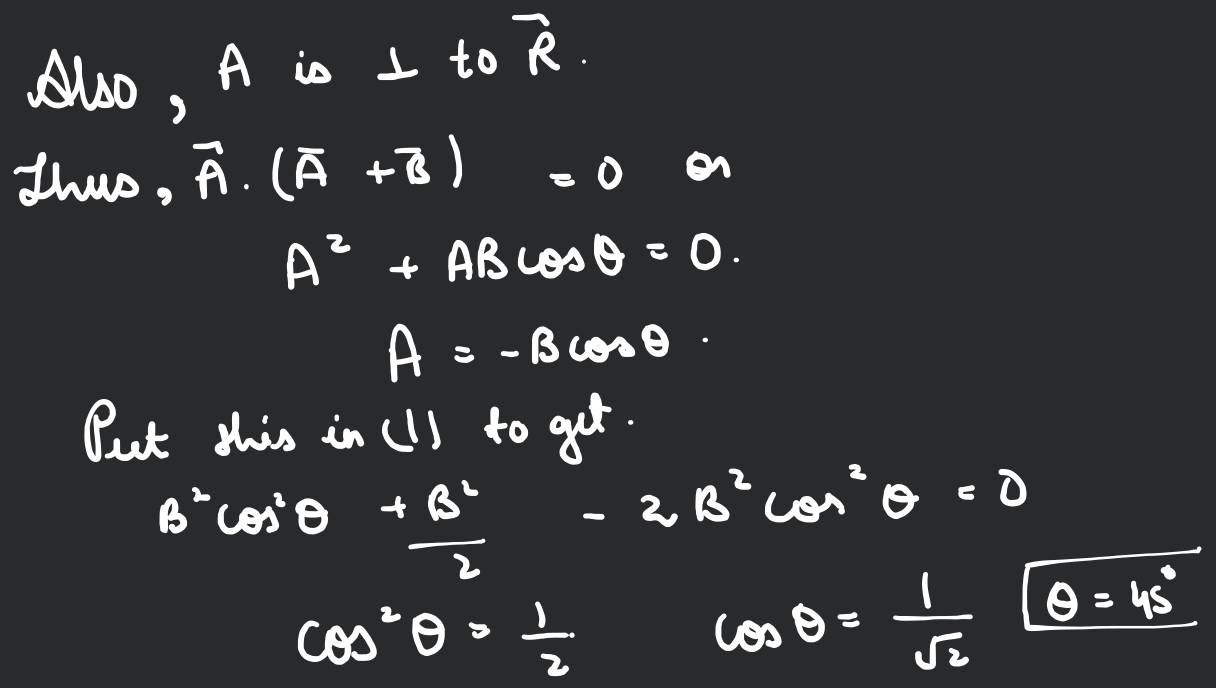 Also, A is ⊥ to R⃗.
Thus, A⃗. (A̅ + B̅) = 0 or
A² + AB cosθ = 0.
A = -B cosθ.
Put this in (1) to get.
B² cos²θ + B²/2 - 2B² cos²θ = 0
cos²θ = 1/2. cosθ = 1/√2 θ = 45°